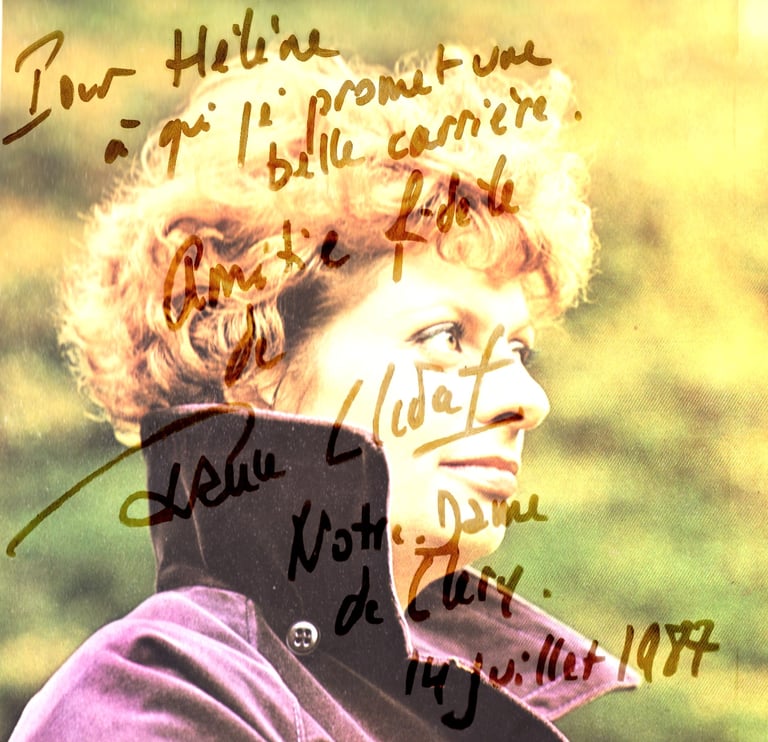 Pour Hélène
à qui je promet une
belle carrière.
Amitié fidèle
de
France Clidat
Notre Dame
de Cléry.
14 juillet 1987